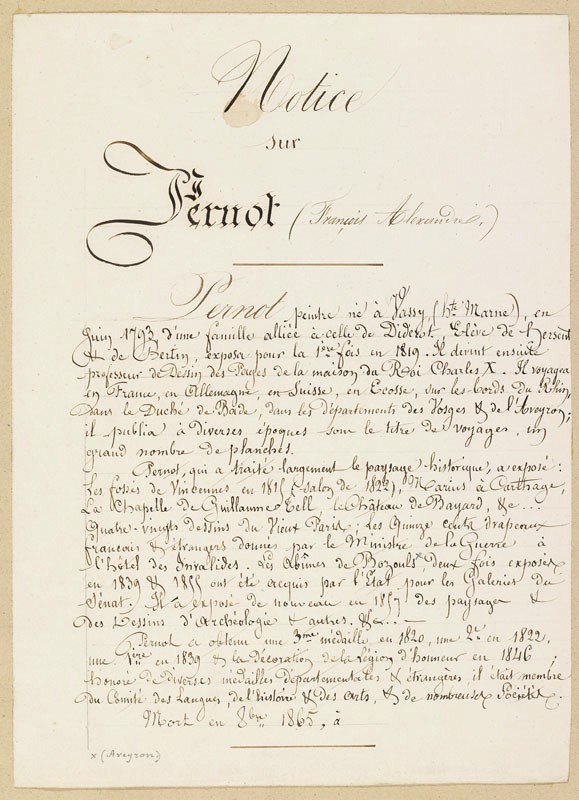 Notice
sur
Pernot (François Alexandre.)
Pernot, peintre né à Vassy (hte Marne), en
Juin 1793 d'une famille alliée à celle de Diderot. Elève de Hersent
& de Bertin, exposa pour la 1ère fois en 1819. Il devint ensuite
professeur de Dessin des Pages de la maison du Roi Charles X. Il voyagea
en France, en Allemagne, en Suisse, en Ecosse, sur les bords du Rhin,
dans le Duché de Bade, dans les départements des Vosges & de l'Aveyron;
il publia à diverses époques sous le titre de voyages, un
grand nombre de planches.
Pernot, qui a traité largement le paysage historique, a exposé:
Les fossés de Vincennes en 1815 (salon de 1822), Marius à Carthage,
La Chapelle de Guillaume Tell, le Château de Bayard, &c...
Quatre-vingts dessins du Vieux Paris; les quinze cents drapeaux
français & étrangers donnés par le Ministre de la Guerre à
l'hôtel des Invalides. Les Abîmes de Bozouls x deux fois exposés
en 1839 & 1855 ont été acquis par l'État pour les Galeries du
Sénat. Il a exposé de nouveau en 1857 des paysages &
des Dessins d'Archéologie & autres. &c... —
Pernot a obtenu une 3me médaille en 1820, une 2e en 1822,
une 1ère en 1839 & la décoration de la Légion d'honneur en 1846;
honoré de diverses médailles départementales & étrangères, il était membre
du Comité des Langues, de l'histoire & des arts, & de nombreuses Sociétés.
Mort en 8bre 1865, à
x (Aveyron)